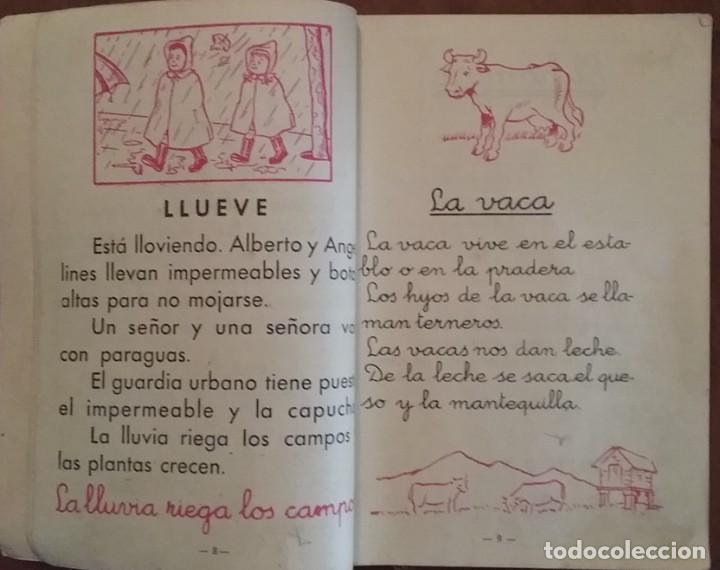 LLUEVE
Está lloviendo. Alberto y Ange
lines llevan impermeables y bot
altas para no mojarse.
Un señor y una señora va
con paraguas.
El guardia urbano tiene pues
el impermeable y la capuch
La lluvia riega los campos
las plantas crecen.
La lluvia riega los campo
— 8 —
La vaca
La vaca vive en el esta-
blo o en la pradera
Los hijos de la vaca se lla-
man terneros.
Las vacas nos dan leche.
De la leche se saca el que-
so y la mantequilla.
— 9 —
todocoleccion